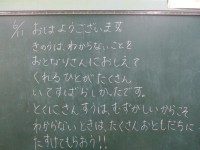 6/1 おはようございます
きのうは、わからないことを
おとなりさんにおしえて
くれるひとがたくさん
いてすばらしかったです。
とくにさんすうは、むずかしいからこそ
わからないときは、たくさんおともだちに
たすけてもらおう!!